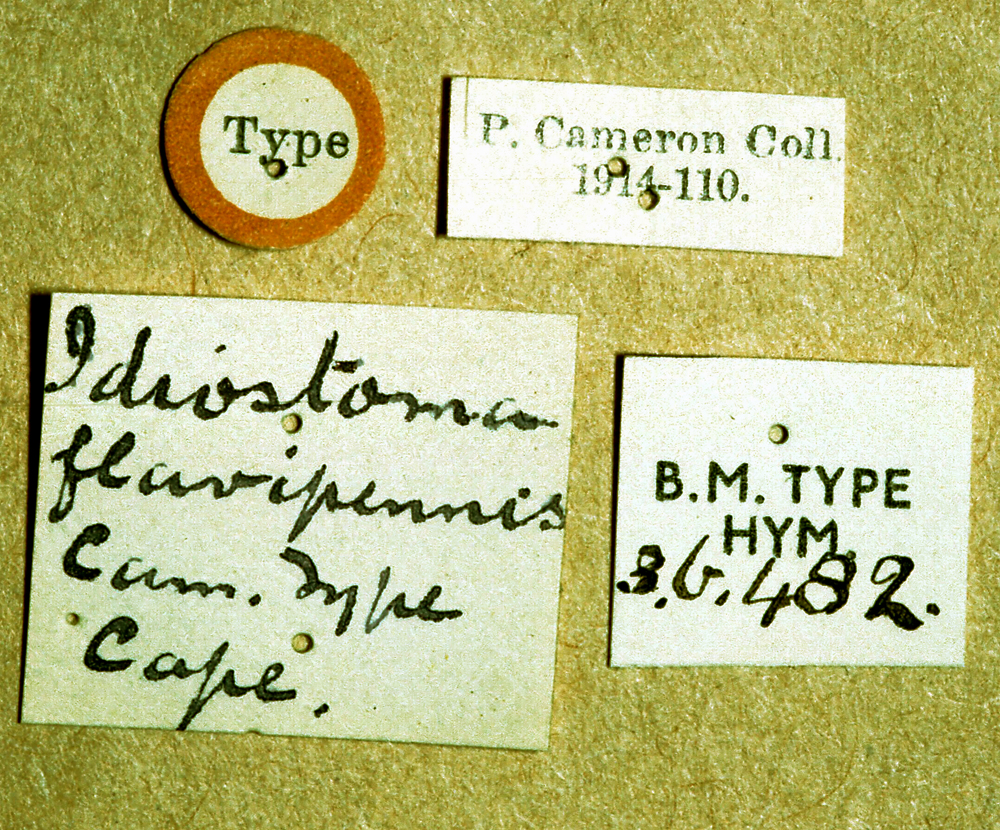 Type
P. Cameron Coll.
1914-110.
Idiostoma
flavipennis
Cam. Type
Cape.
B.M. TYPE
HYM.
3.b.482.